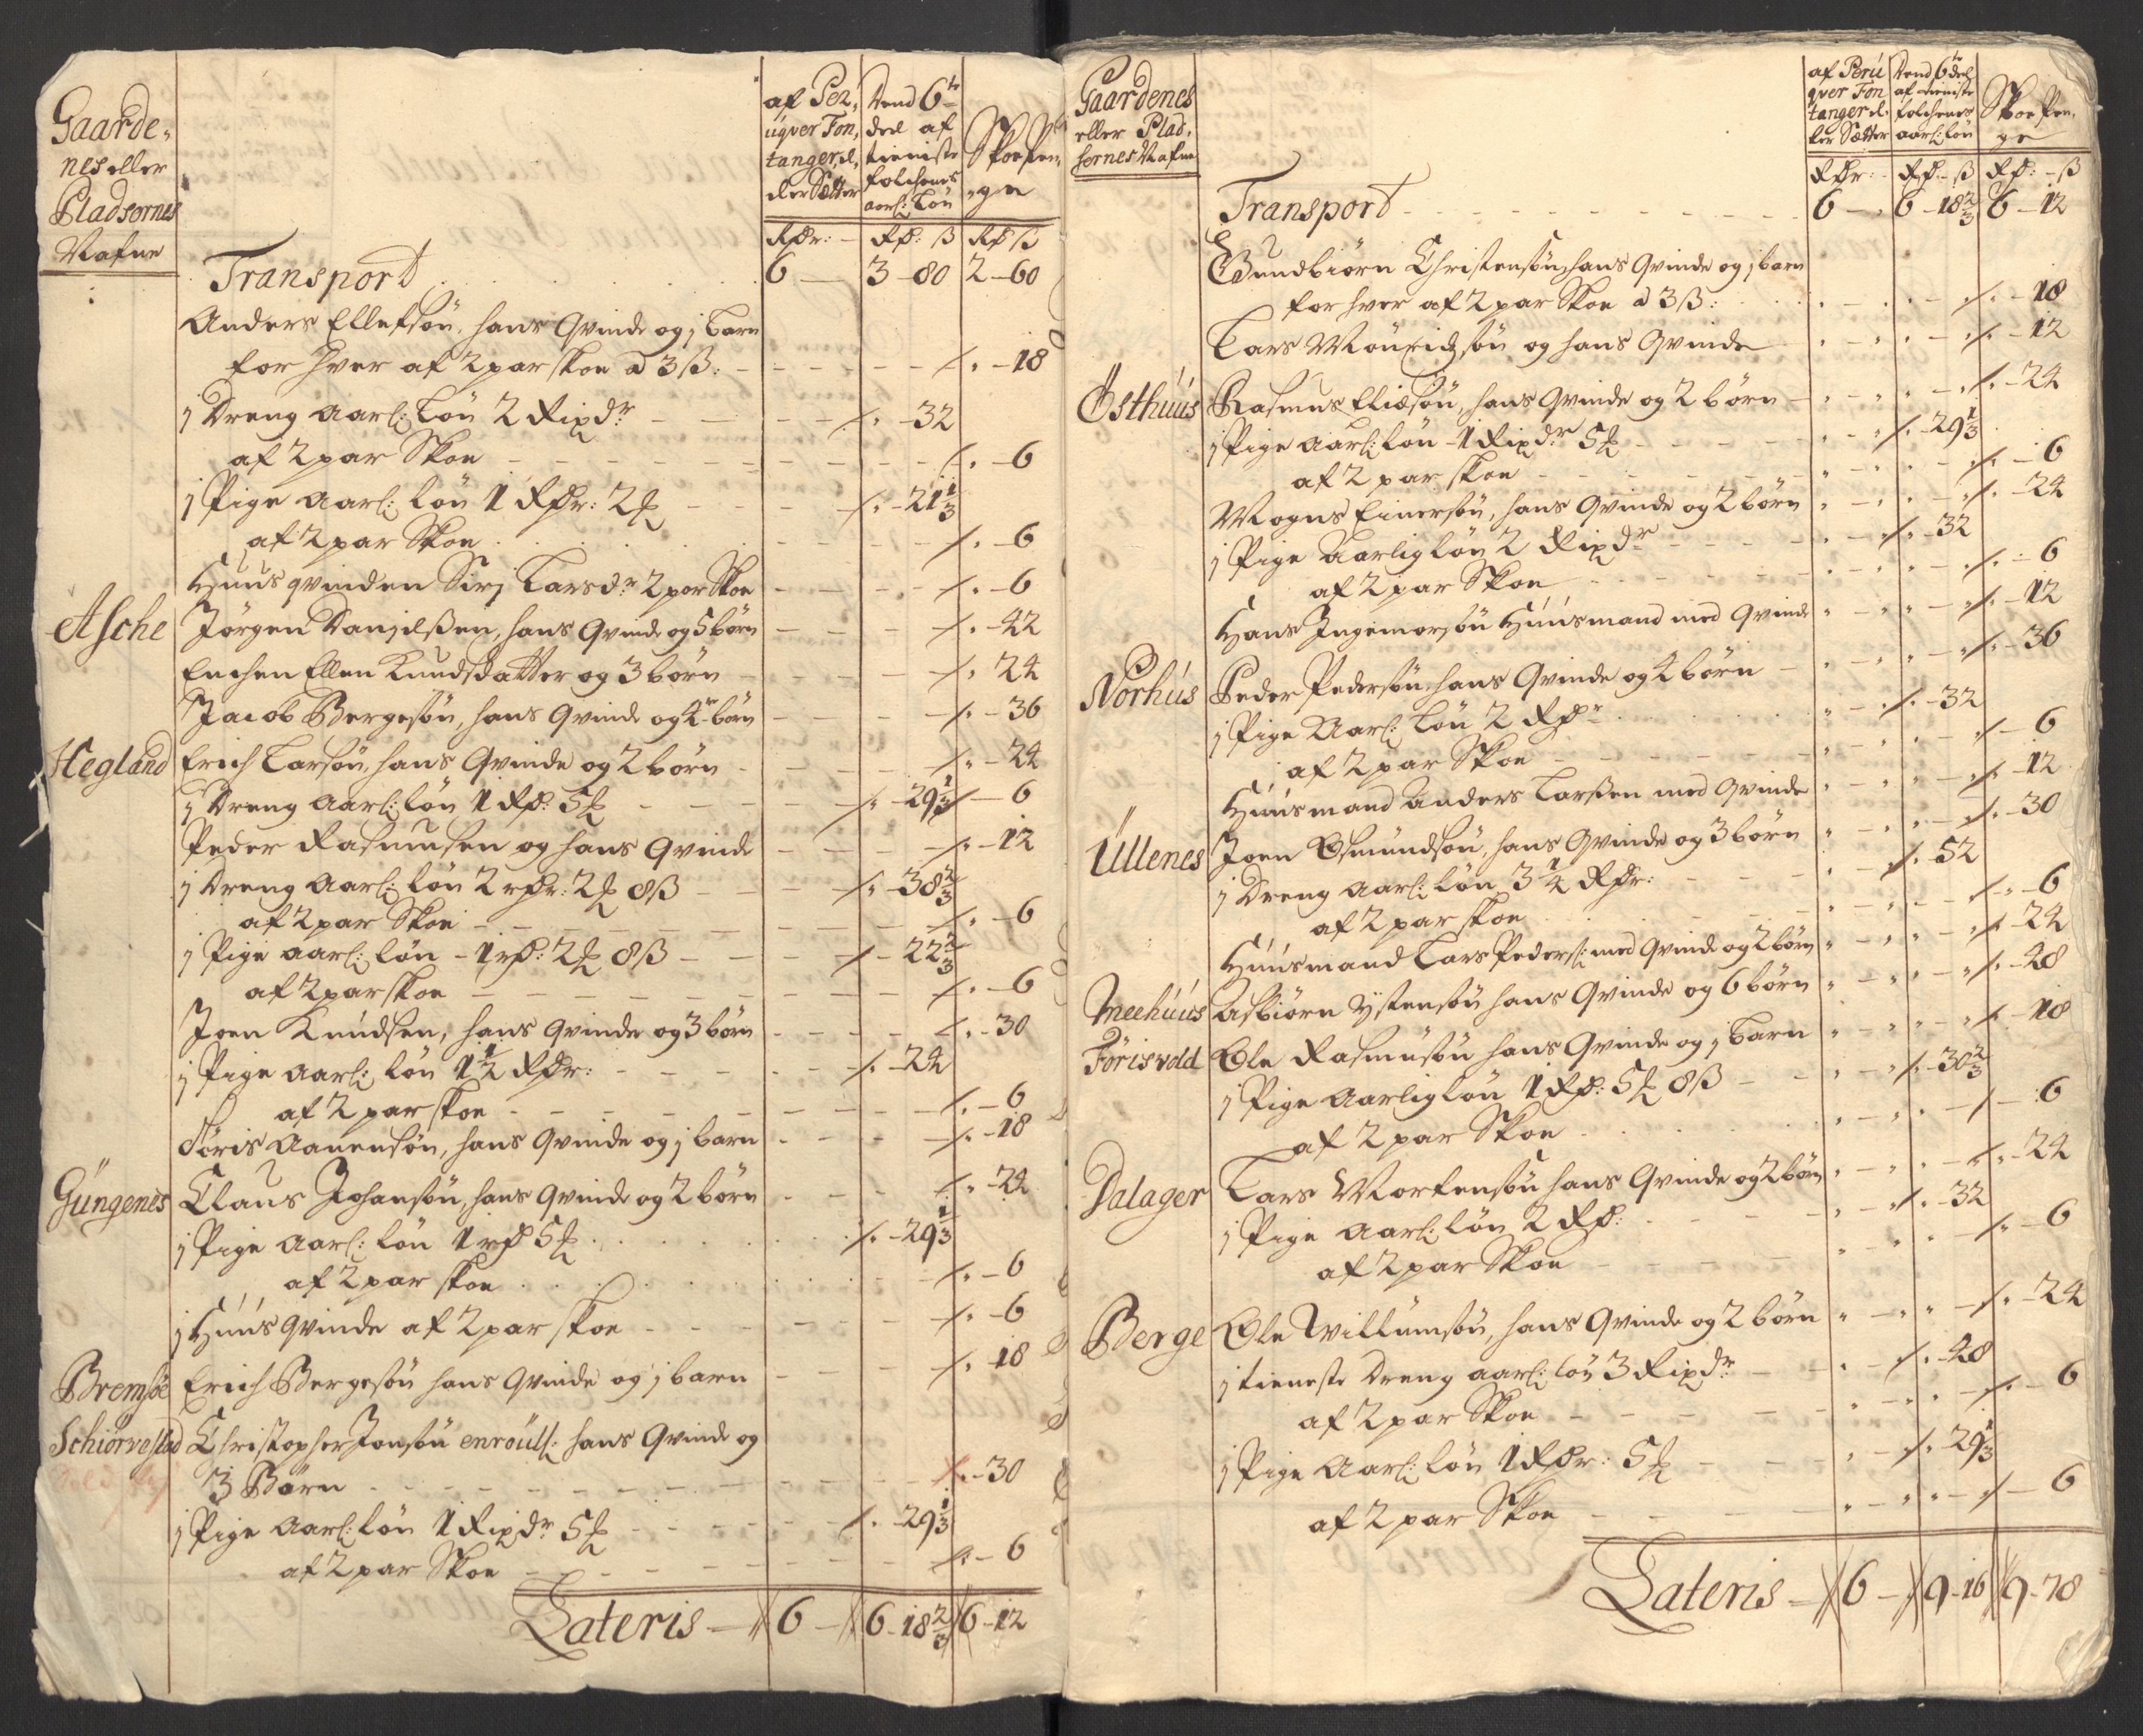 Gaarde-
nes eller
Pladsernes
Nafne
af Per,
uqver Fon,
tanger el,
der Sætter
Rdr:
Vend 6te
deel af
tieniste
folchenes
aarl: Løn
Rd: ß
Skoepen,
ge
Rd ß
Transport 6 — 3 - 80 2 - 60
Anders Ellefsøn, hans Qvinde og j barn
for hver af 2 par skoe a 3 ß: - 18
j Dreng Aarl: Løn 2 Rixdr - 32
af 2 par Skoe - 6
j Pige Aarl: løn 1 Rdr: 2 - 21 1/3
af 2 par Skoe - 6
Huus qvinden Sirj Larsdr 2 par Skoe - 6
Asche Jørgen Danjelßen, hans Qvinde og 5 børn - 42
Enchen Ellen Knudsdatter og 3 børn 24
Jacob Bergesøn, hans Qvinde og 4r børn - 36
Hegland Erich Larsøn, hans Qvinde og 2 børn - 24
j Dreng Aarl: løn 1 Rd: 5 - 29 1/3 - 6
Peder Rasmusen og hans Qvinde - 12
j Dreng Aarl: løn 2 rdr: 2 8 ß - 38 2/3
af 2 par Skoe - 6
j Pige aarl: løn - 1 rd: 2 8 ß - 22 2/3
af 2 par skoe - 6
Joen Knudsen, hans Qvinde og 3 børn - 30
j Pige Aarl: løn 1 1/2 Rdr: - 24
af 2 par skoe - 6
Tøris Aanensøn, hans Qvinde og j barn - 18
Güngenes Claus Johansøn, hans Qvinde og 2 børn - 24
j Pige Aarl: løn 1 rd 5 - 29 1/3
af 2 par skoe - 6
j Huus Qvinde af 2 par skoe - 6
Bremsøe Erich Bergesøn hans Qvinde og j barn 18
Schiørvestad Christopher Jonsøn enroull: hans Qvinde og
3 Børn - 30
j Pige Aarl: løn 1 Rixdr 5 - 29 1/3
af 2 par Skoe - 6
Lateris — 6 — 6 - 18 2/3 6 - 12
Gaardenes
eller Plad,
sernes Nafne
af Peru
qver Fon
tanger el:
ler Sætter
Rdr:
Vend 6te deel
af tieniste
folchenes
aarl: løn
Rd: - ß
Skoe Pen,
ge
Rd: - ß
Transport 6 — 6 - 18 2/3 6 - 12
Gundbiørn Christensøn, hans Qvinde og j barn
for hver af 2 par Skoe a 3 ß: - 18
Lars Mouridsøn og hans Qvinde - 12
Østhuus Rasmus Eliæsøn, hans Qvinde og 2 børn - 24
j Pige Aarl: løn - 1 Rixdr 5 - 29 1/3
af 2 par skoe - 6
Mogns Einersøn, hans Qvinde og 2 børn - 24
j Pige Aarlig løn 2 Rixdr - 32
af 2 par Skoe - 6
Hans Ingemorsøn Huusmand med Qvinde - 12
Nørhus Peder Pedersøn, hans Qvinde og 4 børn - 36
j Pige Aarl: Løn 2 Rdr - 32
af 2 par Skoe - 6
Huusmand Anders Larßen med Qvinde - 12
Üllenes Joen Osmundsøn, hans Qvinde og 3 børn - 30
j Dreng Aarl: løn 3 1/4 Rdr: - 52
af 2 par skoe - 6
Huusmand Lars Peders: med Qvinde og 2 børn - 24
Meehuus Asbiørn Ÿstensøn hans Qvinde og 6 børn - 48
Førisvold Ole Rasmusøn hans Qvinde og j barn - 18
j Pige Aarlig løn 1 Rd: 5 8 ß - 30 2/3
af 2 par Skoe - 6
Dalager Lars Mortensøn hans Qvinde og 2 børn - 24
j Pige Aarl: løn 2 Rd: - 32
af 2 par Skoe - 6
Berge Ole Willumsøn, hans Qvinde og 2 børn - 24
j tieneste Dreng aarl: løn 3 Rixdr - 48
af 2 par Skoe - 6
j Pige Aarl: løn 1 Rdr: 5 - 29 1/3
af 2 par Skoe - 6
Lateris — 6 — 9 - 16 9 - 78